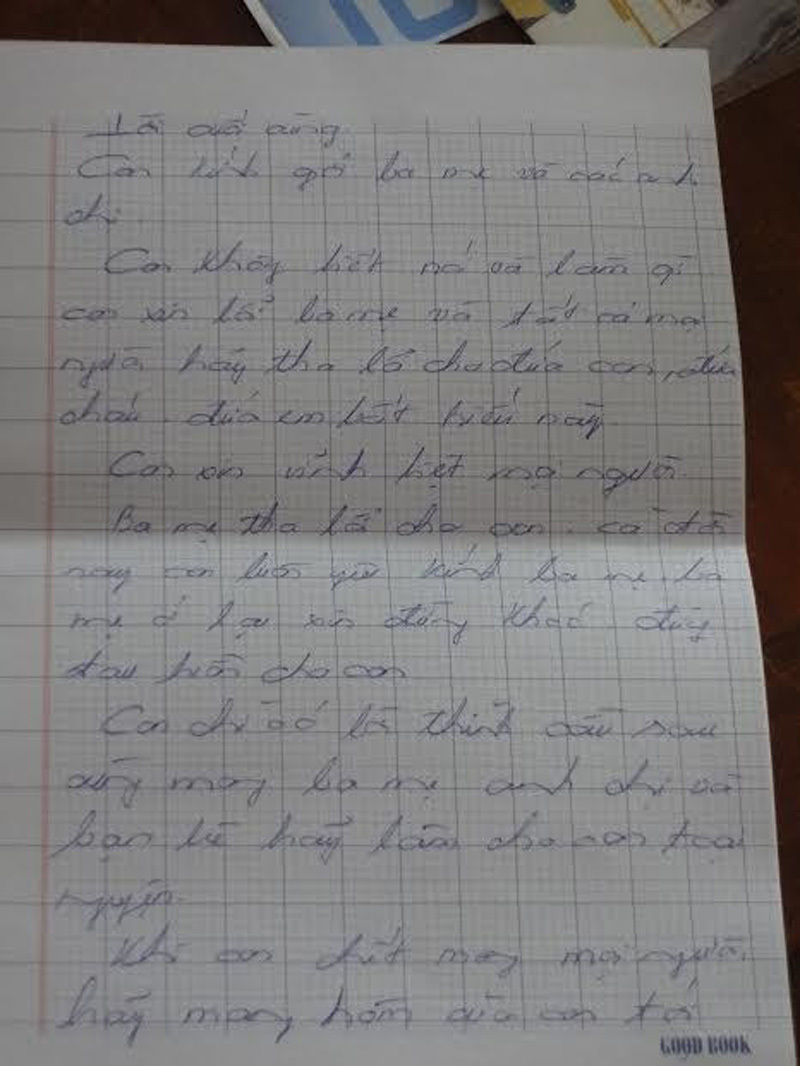 Lời cuối cùng
Con kính gởi ba mẹ và các anh
chị.
Con không biết nói và làm gì
con xin lỗi ba mẹ và tất cả mọi
người hãy tha lỗi cho đứa con, đứa
cháu đứa em bất hiếu này.
Con xin vĩnh biệt mọi người.
Ba mẹ tha lỗi cho con. cả đời
này con luôn yêu kính ba mẹ. ba
mẹ ở lại xin đừng khóc đừng
đau buồn cho con
Con chỉ có lời thỉnh cầu sau
cùng mong ba mẹ anh chị và
bạn bè hãy làm cho con toại
nguyện.
Khi con chết mong mọi người
hãy mang hòm của con tới
GOOD BOOK